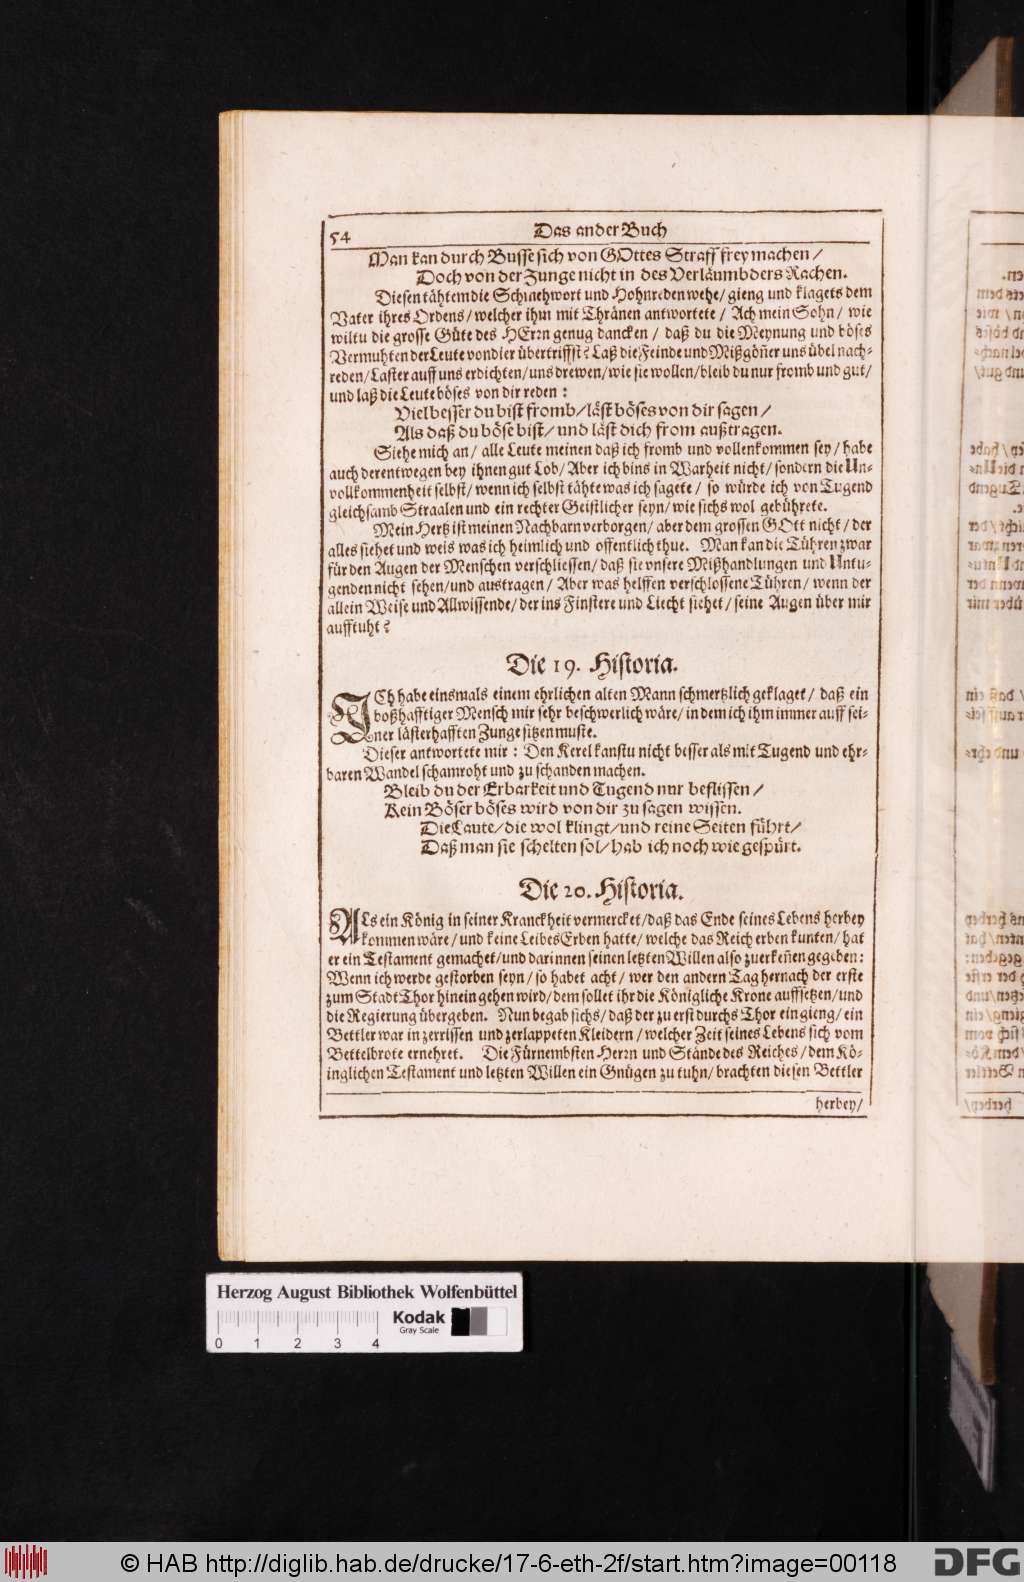 54 Das ander Buch
Man kan durch Busse sich von GOttes Straff frey machen /
Doch von der Zunge nicht in des Verläumbders Rachen.
Diesen tähtem die Schmehwort und Hohnreden wehe / gieng und klagets dem
Vater ihres Ordens / welcher ihm mit Thränen antwortete / Ach mein Sohn / wie
wiltu die grosse Güte des HErrn genug dancken / daß du die Meynung und böses
Vermuhten der Leute von dier übertriffst? Laß die Feinde und Mißgöñer uns übel nach-
reden / Laster auff uns erdichten / uns drewen / wie sie wollen / bleib du nur fromb und gut /
und laß die Leute böses von dir reden :
Viel besser du bist fromb / läst böses von dir sagen /
Als daß du böse bist / und läst dich from außtragen.
Siehe mich an / alle Leute meinen daß ich fromb und vollenkommen sey / habe
auch derentwegen bey ihnen gut Lob / Aber ich bins in Warheit nicht / sondern die Un-
vollkommenheit selbst / wenn ich selbst tähte was ich sagete / so würde ich von Tugend
gleichsamb Straalen und ein rechter Geistlicher seyn / wie sichs wol gebührete.
Mein Hertz ist meinen Nachbarn verborgen / aber dem grossen GOtt nicht / der
alles siehet und weis was ich heimlich und offentlich thue. Man kan die Tühren zwar
für den Augen der Menschen verschliessen / daß sie vnsere Mißhandlungen und Untu-
genden nicht sehen / und austragen / Aber was helffen verschlossene Tühren / wenn der
allein Weise und Allwissende / der ins Finstere und Liecht siehet / seine Augen über mir
aufftuht?
Die 19. Historia.
ICh habe einsmals einem ehrlichen alten Mann schmertzlich geklaget / daß ein
boßhafftiger Mensch mir sehr beschwerlich wäre / in dem ich ihm immer auff sei-
ner lästerhafften Zunge sitzen muste.
Dieser antwortete mir : Den Kerel kanstu nicht besser als mit Tugend und ehr-
baren Wandel schamroht und zu schanden machen.
Bleib du der Erbarkeit und Tugend nur beflissen /
Kein Böser böses wird von dir zu sagen wissen.
Die Laute / die wol klingt / und reine Seiten führt /
Daß man sie schelten sol / hab ich noch wie gespürt.
Die 20. Historia.
ALs ein König in seiner Kranckheit vermercket / daß das Ende seines Lebens herbey
kommen wäre / und keine Leibes Erben hatte / welche das Reich erben kunten / hat
er ein Testament gemachet / und darinnen seinen letzten Willen also zuerkeñen gegeben :
Wenn ich werde gestorben seyn / so habet acht / wer den andern Tag hernach der erste
zum Stadt Thor hinein gehen wird / dem sollet ihr die Königliche Krone auffsetzen / und
die Regierung übergeben. Nun begab sichs / daß der zu erst durchs Thor ein gieng / ein
Bettler war in zerrissen und zerlappeten Kleidern / welcher Zeit seines Lebens sich vom
Bettelbrote ernehret. Die Fürnembsten Herrn und Stände des Reiches / dem Kö-
inglichen Testament und letzten Willen ein Gnügen zu tuhn / brachten diesen Bettler
herbey /
Herzog August Bibliothek Wolfenbüttel
0 1 2 3 4
Kodak
Gray Scale
© HAB http://diglib.hab.de/drucke/17-6-eth-2f/start.htm?image=00118
DFG